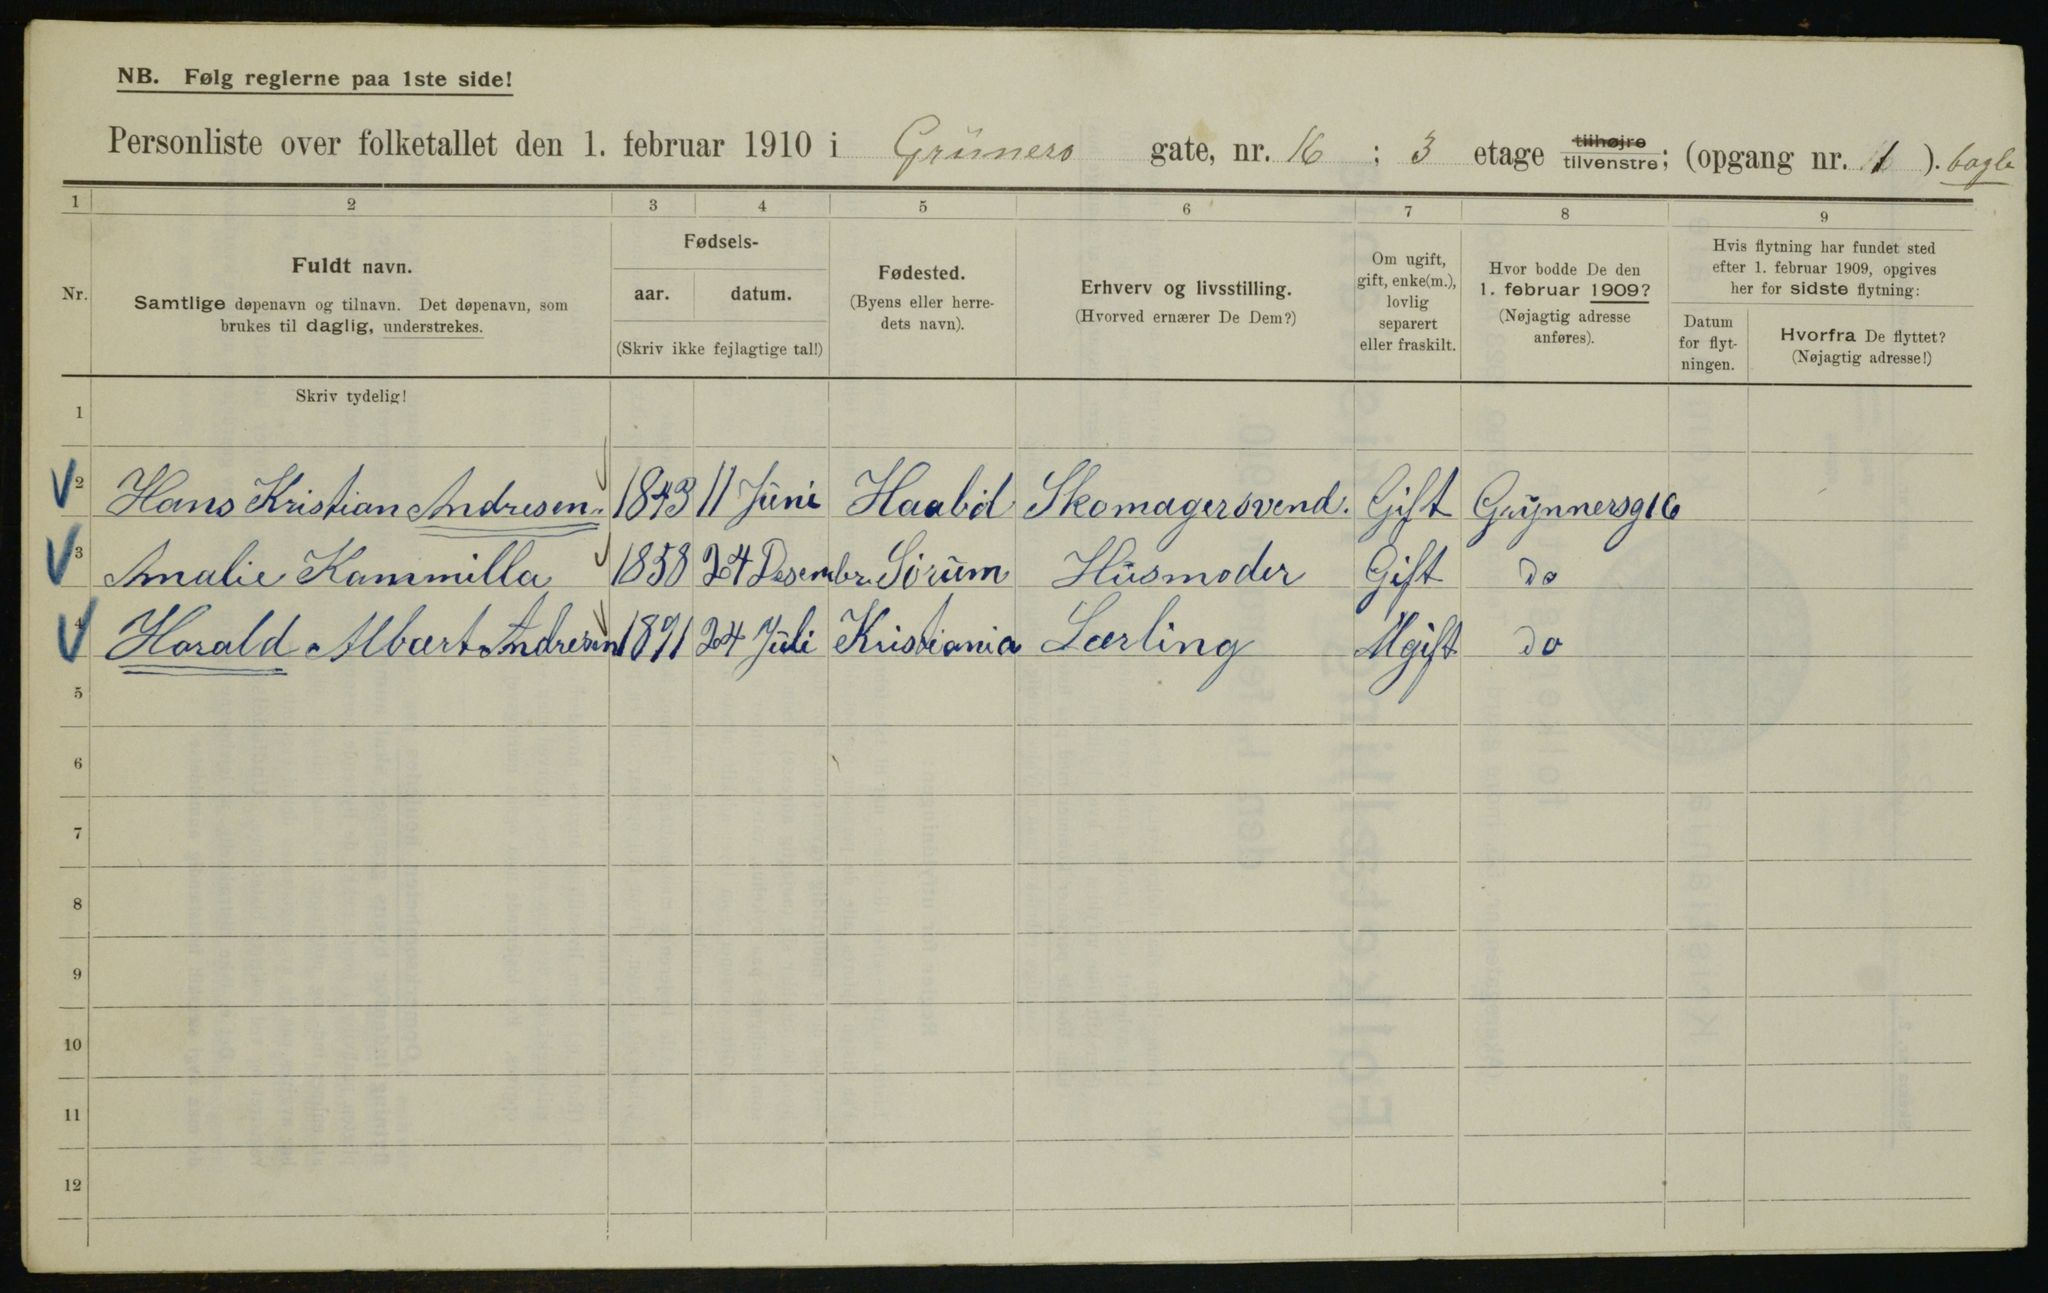 NB. Følg reglerne paa 1ste side!
Personliste over folketallet den 1. februar 1910 i Grüners gate, nr. 16 : 3 etage tilhøjre tilvenstre; (opgang nr. ).
1 2 3 4 5 6 7 8 9
Nr.
Fuldt navn.
Samtlige døpenavn og tilnavn. Det døpenavn, som
brukes til daglig, understrekes.
Fødsels-
aar. datum.
(Skriv ikke fejlagtige tal!)
Fødested.
(Byens eller herre-
dets navn).
Erhverv og livsstilling.
(Hvorved ernærer De Dem?)
Om ugift,
gift, enke(m.),
lovlig
separert
eller fraskilt.
Hvor bodde De den
1. februar 1909?
(Nøjagtig adresse
anføres).
Hvis flytning har fundet sted
efter 1. februar 1909, opgives
her for sidste flytning:
Datum
for flyt-
ningen.
Hvorfra De flyttet?
(Nøjagtig adresse!)
Skriv tydelig!
1
2 Hans Kristian Andresen. 1843 11 Juni Haabøl Skomagersvend. Gift Grynnersg 16
3 Amalie Kammilla 1858 24 Desembr. Sørum Husmoder Gift do
4 Harald Albært Andresen 1891 24 Juli Kristiania Lærling Ugift do
5
6
7
8
9
10
11
12